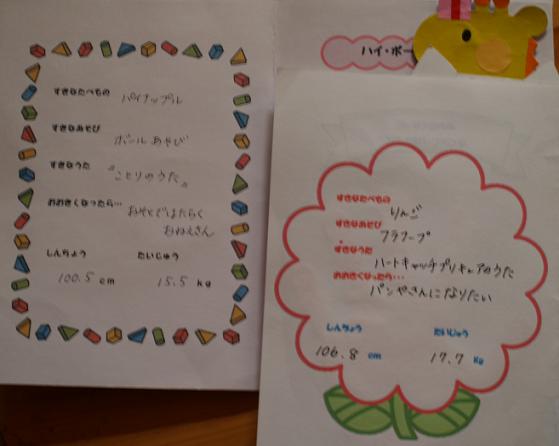 すきなたべもの パイナップル
すきなあそび ボールあそび
すきなうた "ことりのうた"
おおきくなったら… おそとではたらく
おねえさん
しんちょう たいじゅう
100.5 cm 15.5 kg
ハイ・ポー
すきなたべもの りんご
すきなあそび フラフープ
すきなうた ハートキャッチプリキュアのうた
おおきくなったら…
パンやさんになりたい
しんちょう たいじゅう
106.8 cm 17.7 kg